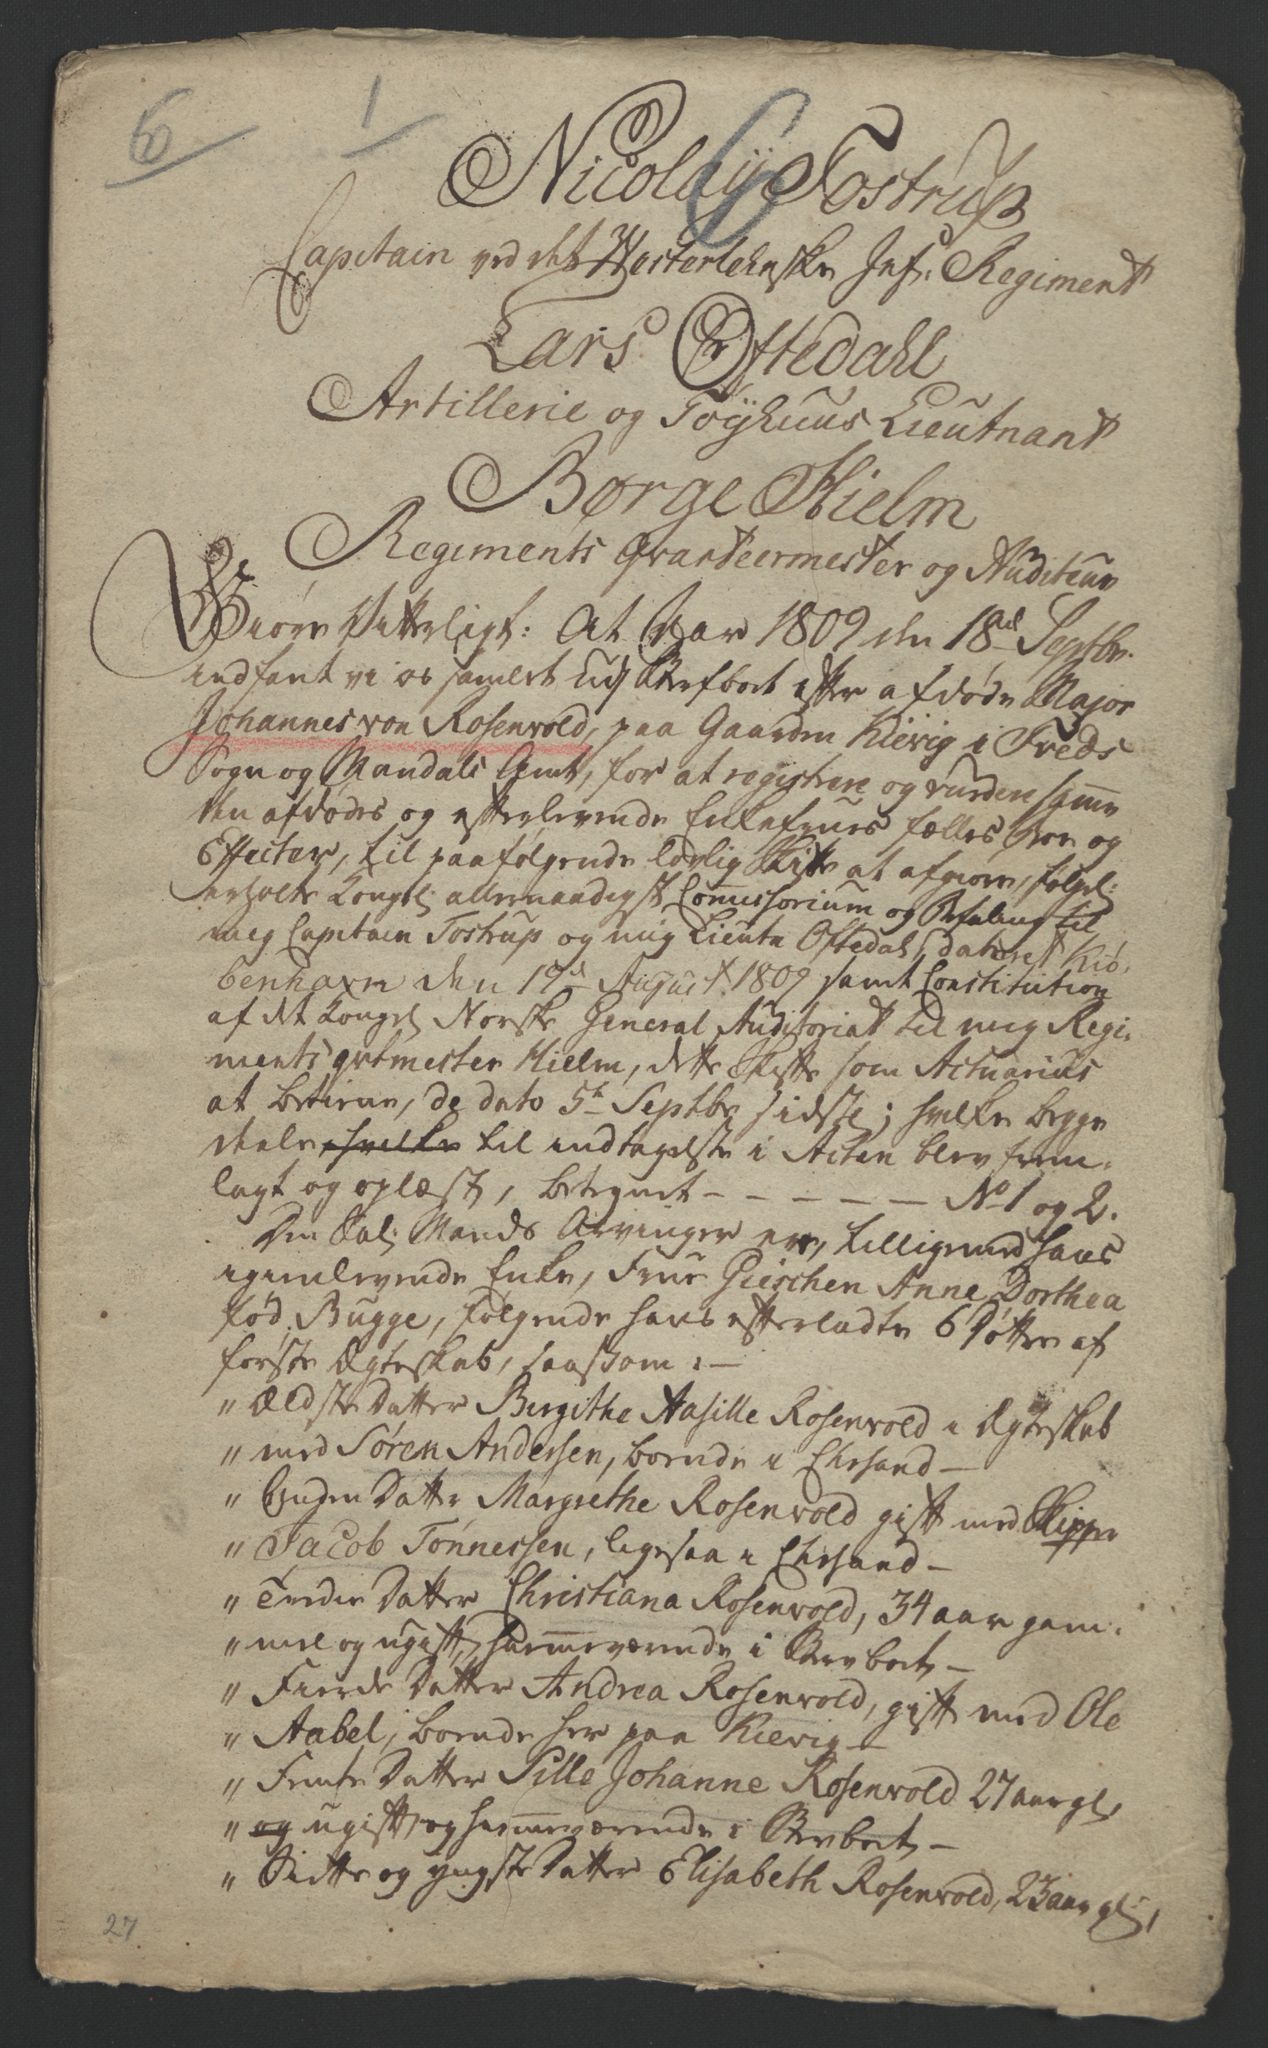 6 1 6
Nicolaÿ Tostrup
Capitain ved det Westerlehnske Inf. Regiment
Lars Oftedahl
Artillerie og Tøÿhuus Lieutnant
Børge Hielm
Regiments Qvarteermester og Auditeur
Giøre Vitterligt: At Aar 1809 den 18de Septbr.
indfant vi os samlet udj Sterfboet efter afdøde Major
Johannes von Rosenvold, paa Gaarden Kievig i Treds
Sogn og Mandals Amt, for at registrere og vurdere samme
den afdødes og efterlevende Enkefrues fælles Boe og
Effecter, til paafølgende lovlig Skifte at afgiøre, følgel:
erholte Kongel: allernaadigst Commissorium og Befaling til
mig Capitain Tostrup og mig Lieutn Oftedahl, dateret Kiø-
benhavn den 19de August 1809 samt Constitution
af det Kongel: Norske General Auditoriat til mig Regi-
ments qvtmester Hielm, dette Skifte som Actuarius
at betiene, de dato 5te Septbr sidste; hvilke begge
deele hvilke til indtagelse i Acten blev frem-
lagt og oplæst, betegnet - - - - - No 1 og 2.
Den Sal: Mands Arvinger ere, tilligemed hans
igienlevende Enke, Frue Gieschen Anne Dorthea
fød Bugge, følgende hans efterladte 6 Døttre af
første Ægteskab, saasom: -
" Ældste Datter Birgithe Aasille Rosenvold i Ægteskab
" med Søren Andersen, boende i Chrsand -
" Anden Datter Margrethe Rosenvold gift med Skipper
" Jacob Tønnessen, ligesaa i Chrsand -
" Tredie Datter Christiana Rosenvold, 34 aar gam-
" mel og ugift, hiemmeværende i Stervboet -
" Fierde Datter Andrea Rosenvold, gift med Ole
" Aabel, boende her paa Kievig -
" Femte Datter Sille Johanne Rosenvold 27 aar gl,
" og ugift og hiemmeværende i Stervboet -
" Siette og yngste Datter Elisabeth Rosenvold, 23 aar gl,
27